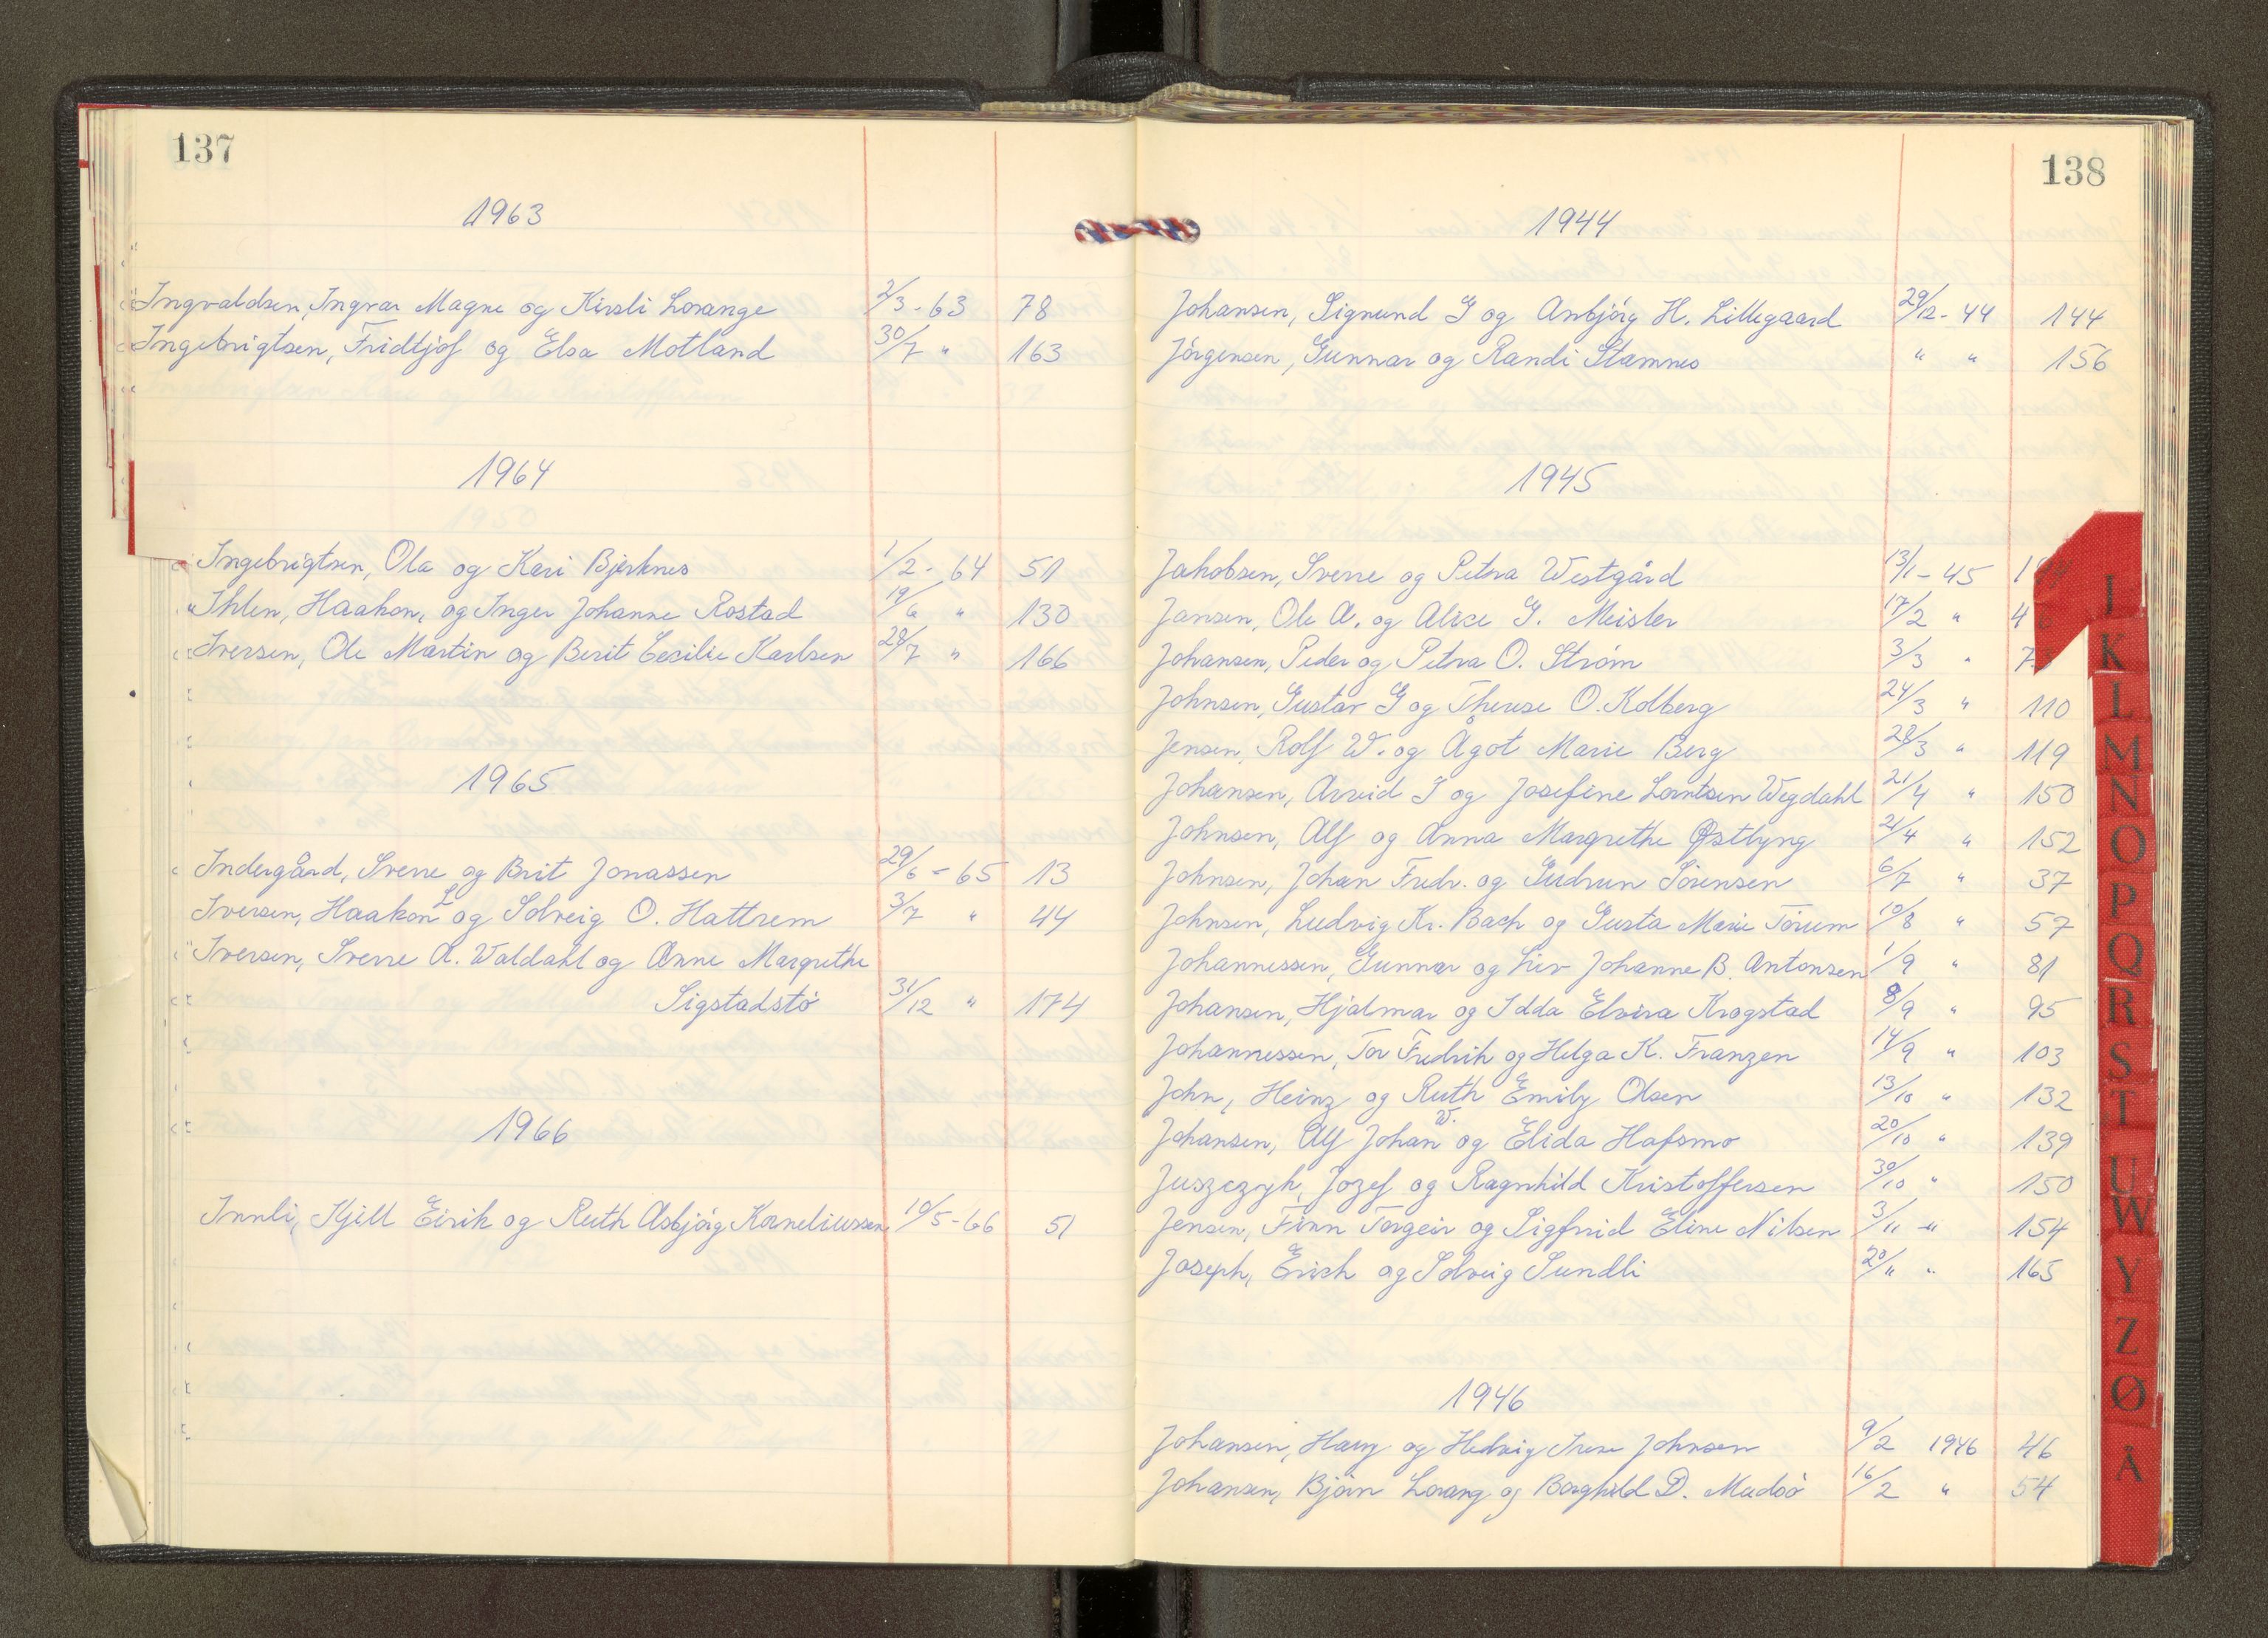 137
1963
Ingvaldsen, Ingvar Magne og Kirsli Lorange 2/3-63 78
Ingebrigtsen, Fridtjof og Elsa Motland 30/7 " 163
1964
Ingebrigtsen, Ola og Kari Bjerknes 1/2-64 51
Ihlen, Haakon, og Inger Johanne Rostad 19/6 " 130
Iversen, Ole Martin og Berit Cecilie Karlsen 28/7 " 166
1965
Indergård, Sverre og Brit Jonassen 29/6-65 13
Iversen, Haakon L og Solveig O. Hattrem 3/7 " 44
Iversen, Sverre A. Waldahl og Anne Margrethe
Sigstadstö 31/12 " 174
1966
Innli, Kjell Eirik og Ruth Asbjörg Korneliussen 10/5-66 51
138
1944
Johansen, Sigmund G og Anbjörg H. Lillegaard 29/12-44 144
Jörgensen, Gunnar og Randi Stamnes " " 156
1945
Jakobsen, Sverre og Petra Westgård 13/1-45
Jansen, Ole A. og Alice G. Meisler 17/2 " 4
Johansen, Peder og Petra O. Ström 3/3 " 7
Johnsen, Gustav G og Therese O. Kolberg 24/3 " 110
Jensen, Rolf W. og Ågot Marie Berg 28/3 " 119
Johansen, Arvid I og Josefine Lorntsen Wegdahl 21/4 " 150
Johnsen, Alf og Anna Margrethe Østbyng 21/4 " 152
Johnsen, Johan Fredr. og Gudrun Sörensen 6/7 " 37
Johnsen, Ludvig Kr. Bach og Gusta Marie Törum 10/8 " 57
Johannessen, Gunnar og Liv Johanne B. Antonsen 1/9 " 81
Johansen, Hjalmar og Idda Elvira Krogstad 8/9 " 95
Johannessen, Tor Fredrik og Helga K. Franzen 14/9 " 103
John, Heinz og Ruth Emily Olsen 13/10 " 132
Johansen, Alf Johan W. og Elida Hafsmo 20/10 " 139
Juszczyk, Jozef og Ragnhild Kristoffersen 30/10 " 150
Jensen, Finn Torgeir og Sigfrid Eline Nilsen 3/11 " 154
Joseph, Erich og Solveig Sundli 20/11 " 165
1946
Johansen, Harry og Hedvig Irene Johnsen 9/2 1946 46
Johansen, Björn Lorang og Borghild D. Madsö 16/2 " 54
I
K
L
M
N
O
P
Q
R
S
T
U
W
Y
Z
Ø
Å